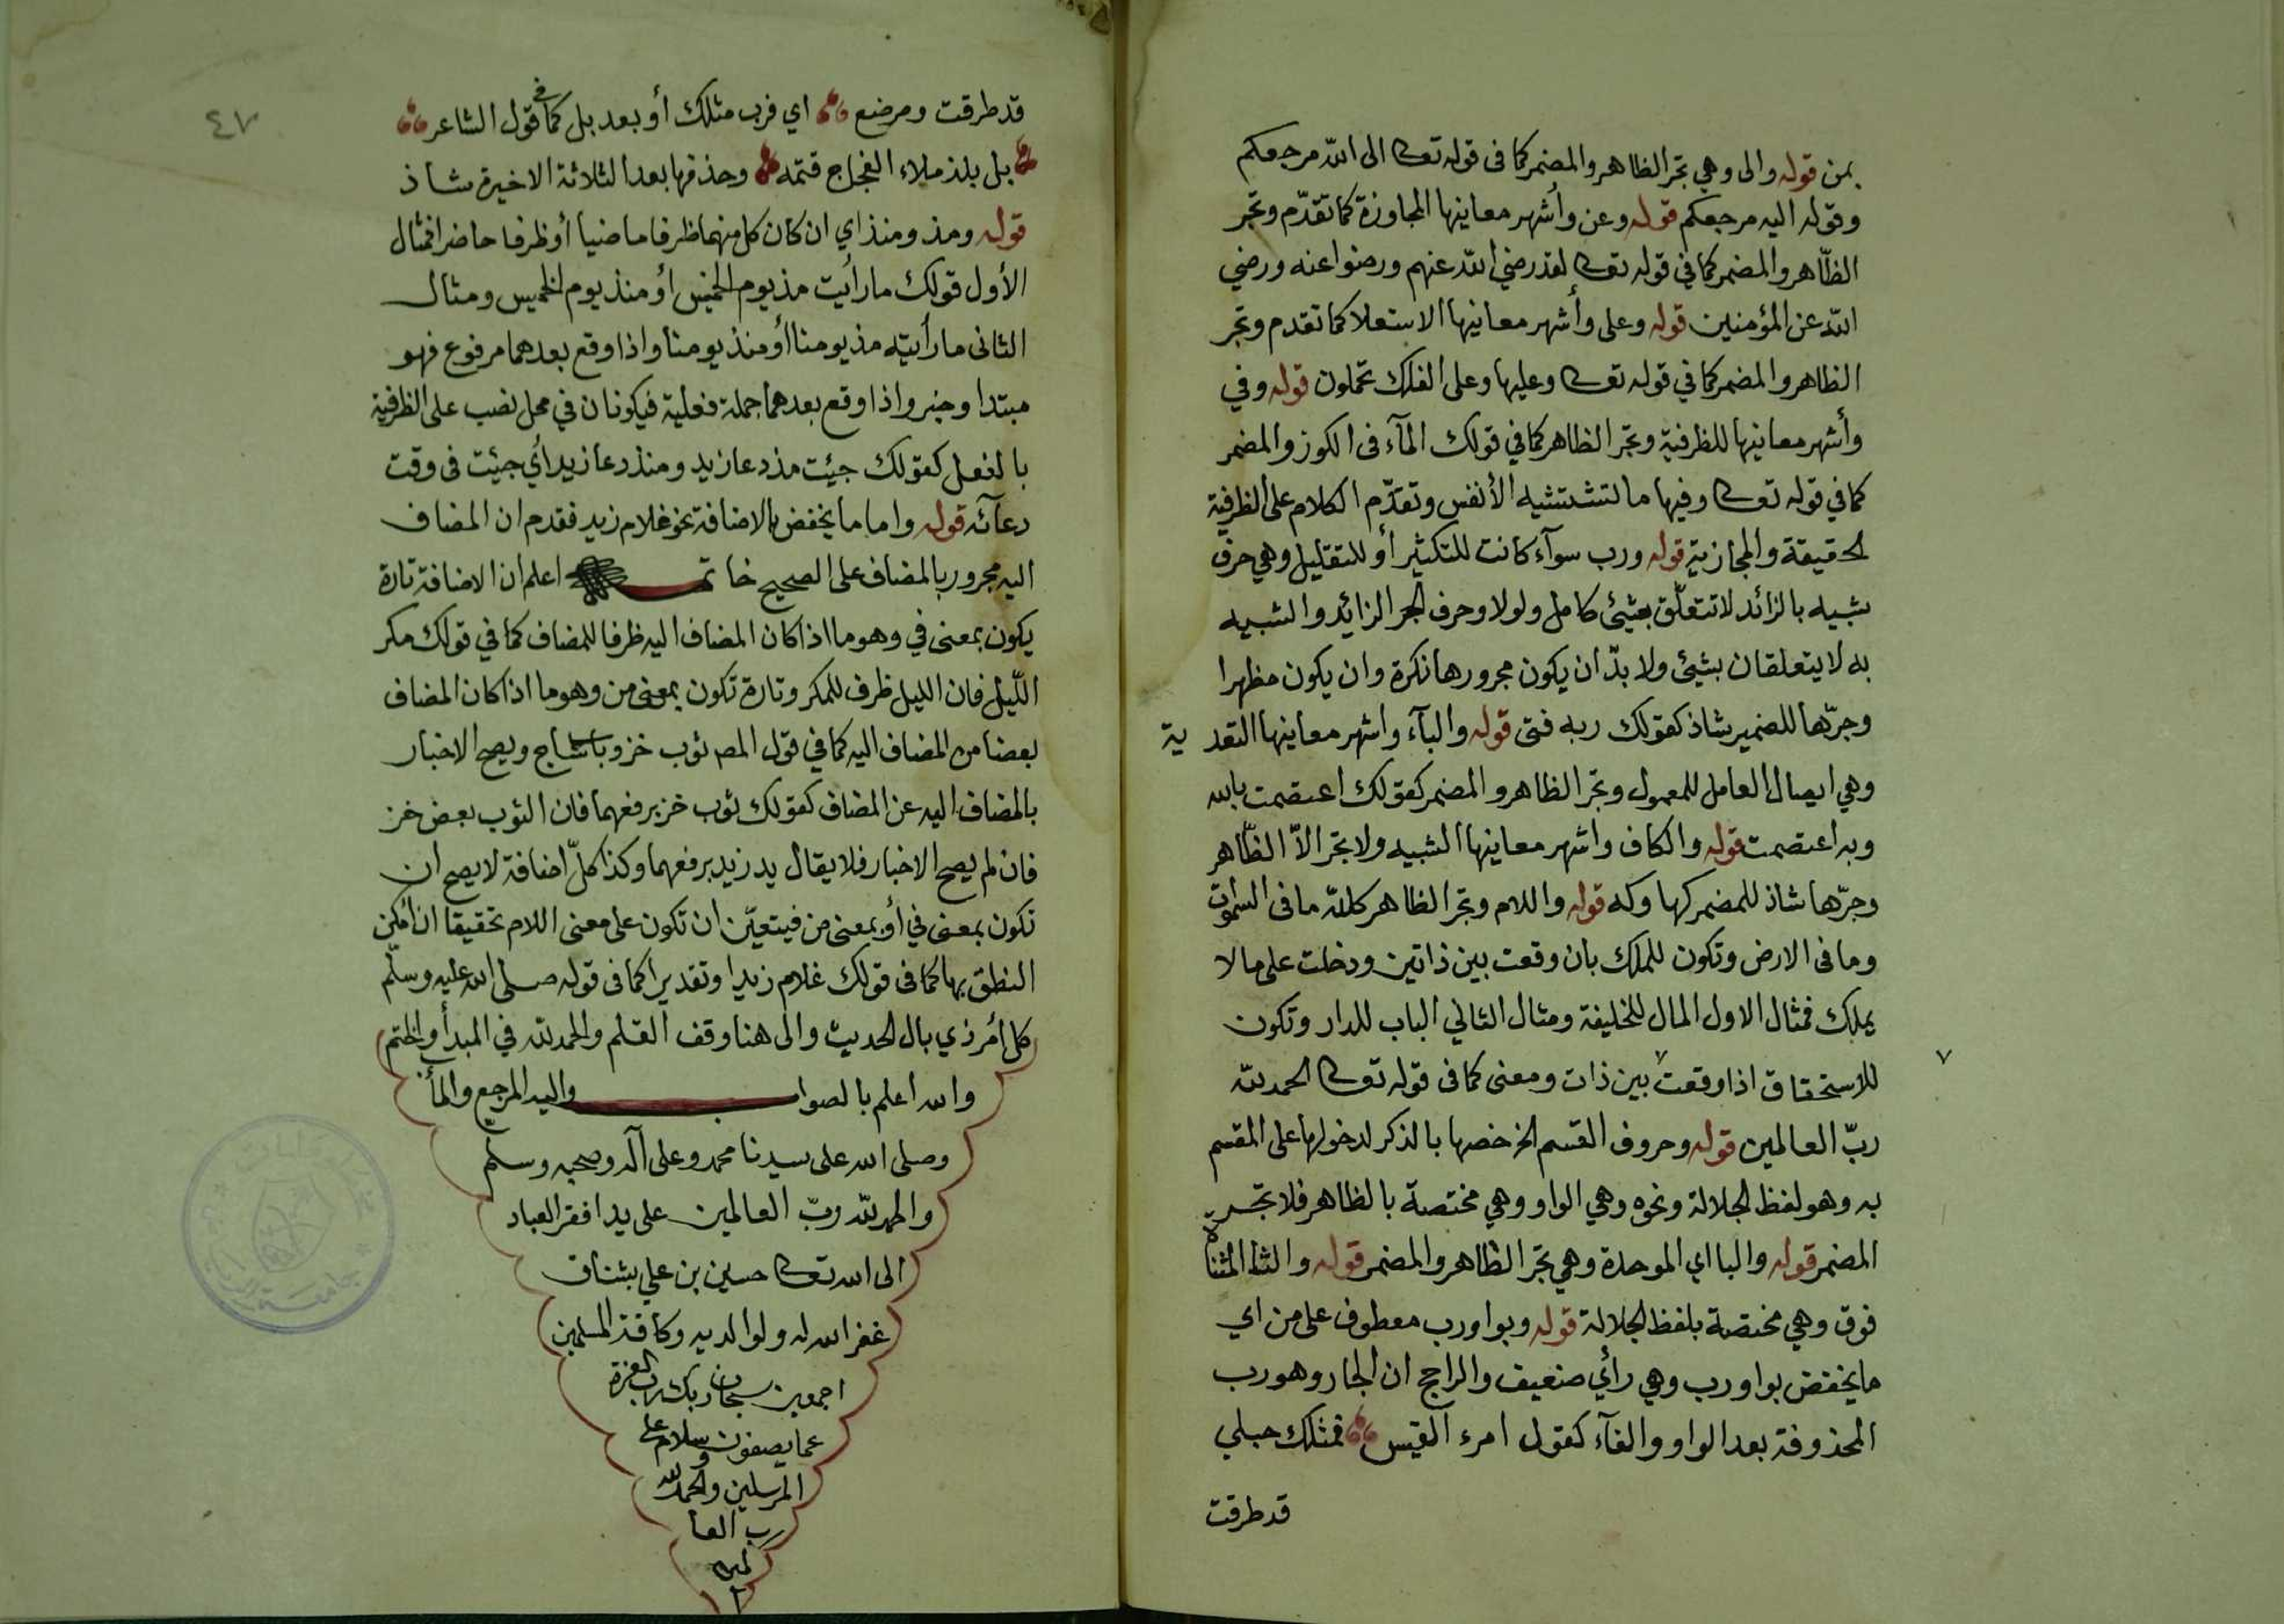 بمن قوله والى وهي تجر الظاهر والمضمر كما فى قوله تعالى الى الله مرجعكم
وقوله اليه مرجعكم قوله وعن وأشهر معانيها المجاوزة كما تقدّم وتجر
الظّاهر والمضمر كما في قوله تعالى لقد رضي الله عنهم ورضوا عنه ورضي
الله عن المؤمنين قوله وعلى وأشهر معانيها الاستعلا كما تقدم وتجر
الظاهر والمضمر كما في قوله تعالى وعليها وعلى الفلك تحملون قوله وفي
وأشهر معانيها للظرفية وتجر الظاهر كما في قولك المآء فى الكوز والمضمر
كما في قوله تعالى وفيها ما تشتهيه الأنفس وتقدّم الكلام على الظرفية
الحقيقة والمجازية قوله ورب سوآء كانت للتكثير أو للتقليل وهي حرف
شبيه بالزائد لا تتعلّق بشيئ كامل ولولا وحرف الجر الزائد والشبيه
به لا يتعلقان بشيئ ولا بدّ ان يكون مجرورها نكرة وان يكون مظهرا
وجرّها للضمير شاذ كقولك ربه فتى قوله والبآء واشهر معانيها التعدية
وهي ايصال العامل للمعمول وتجر الظاهر والمضمر كقولك اعتصمت بالله
وبه اعتصمت قوله والكاف واشهر معانيها التشبيه ولا تجر الاّ الظّاهر
وجرّها شاذ للمضمر كها وكه قوله واللام وتجر الظاهر كلله ما فى السموات
وما فى الارض وتكون للملك بان وقعت بين ذاتين ودخلت على ما لا
يملك فمثال الاول المال للخليفة ومثال الثاني الباب للدار وتكون
للاستحقاق اذا وقعت بين ذات ومعنى كما فى قوله تعالى الحمد لله
ربّ العالمين قوله وحروف القسم الخ خصها بالذكر لدخولها على المقسم
به وهو لفظ الجلالة ونحوه وهي الواو وهي مختصة بالظاهر فلا تجر
المضمر قوله والبا اي الموحدة وهي تجر الظاهر والمضمر قوله والتا المثناة
فوق وهي مختصة بلفظ الجلالة قوله وبواو رب معطوف على من اي
ما يخفض بواو رب وهي رأي ضعيف والراجح ان الجار وهو رب
المحذوفة بعد الواو والفآء كقول امرء القيس فمثلك حبلي
قد طرقت
٤٧
قد طرقت ومرضع اي فرب مثلك أو بعد بل كما في قول الشاعر
بل بلد ملاء الفجاج قتمه وحذفها بعد الثلاثة الاخيرة شاذ
قوله ومذ ومنذ اي ان كان كل منهما ظرفا ماضيا أو ظرفا حاضرا فمثال
الأول قولك ما رأيت مذ يوم الخميس أو منذ يوم الخميس ومثال
الثانى ما رأيته مذ يومنا أو منذ يومنا واذا وقع بعدهما مرفوع فهو
مبتدا وخبر واذا وقع بعدهما جملة فعلية فيكونان في محل نصب على الظرفية
بالفعل كقولك جيئت مذ دعا زيد ومنذ دعا زيد أي جيئت فى وقت
دعآئه قوله واما ما يخفض بالاضافة نحو غلام زيد فقدم ان المضاف
اليه مجرور بالمضاف على الصحيح خاتم اعلم ان الاضافة تارة
يكون بمعنى في وهو ما اذا كان المضاف اليه ظرفا للمضاف كما في قولك مكر
اللّيل فان الليل ظرف للمكر وتارة تكون بمعنى من وهو ما اذا كان المضاف
بعضا من المضاف اليه كما في قول المص ثوب خز وباب ساج ويصح الاخبار
بالمضاف اليه عن المضاف كقولك ثوب خز برفعهما فان الثوب بعض خز
فان لم يصح الاخبار فلا يقال يد زيد برفعهما وكذا كلّ اضافة لا يصح ان
تكون بمعنى في أو بمعنى من فيتعيّن ان تكون على معنى اللام تحقيقا ان أمكن
النطق بها كما فى قولك غلام زيد او تقديرا كما فى قوله صلى الله عليه وسلّم
كل أمر ذي بال الحديث والى هنا وقف القلم والحمد لله في المبدأ والختم
والله اعلم بالصواب واليه المرجع والمأب
وصلى الله على سيدنا محمد وعلى آله وصحبه وسلّم
والحمد لله ربّ العالمين على يد افقر العباد
الى الله تعالى حسين بن علي بشناق
غفر الله له ولوالديه وكافة المسلمين
اجمعين سبحان ربك رب العزة
عما يصفون وسلام على
المرسلين والحمد لله
رب العا
لمين